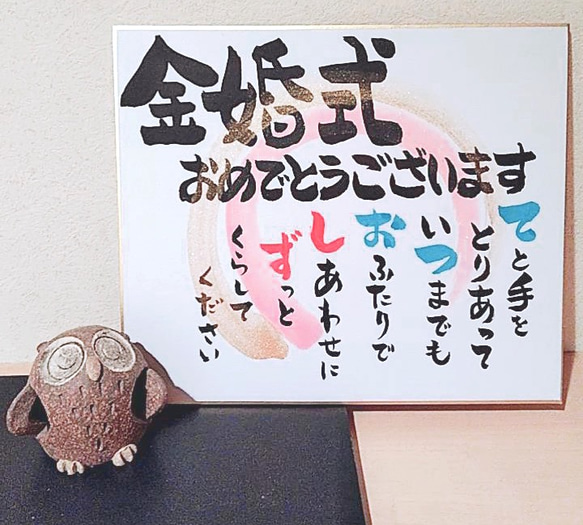 金婚式
おめでとうございます
てと手を
とりあって
いつまでも
おふたりで
しあわせに
ずっと
くらして
ください